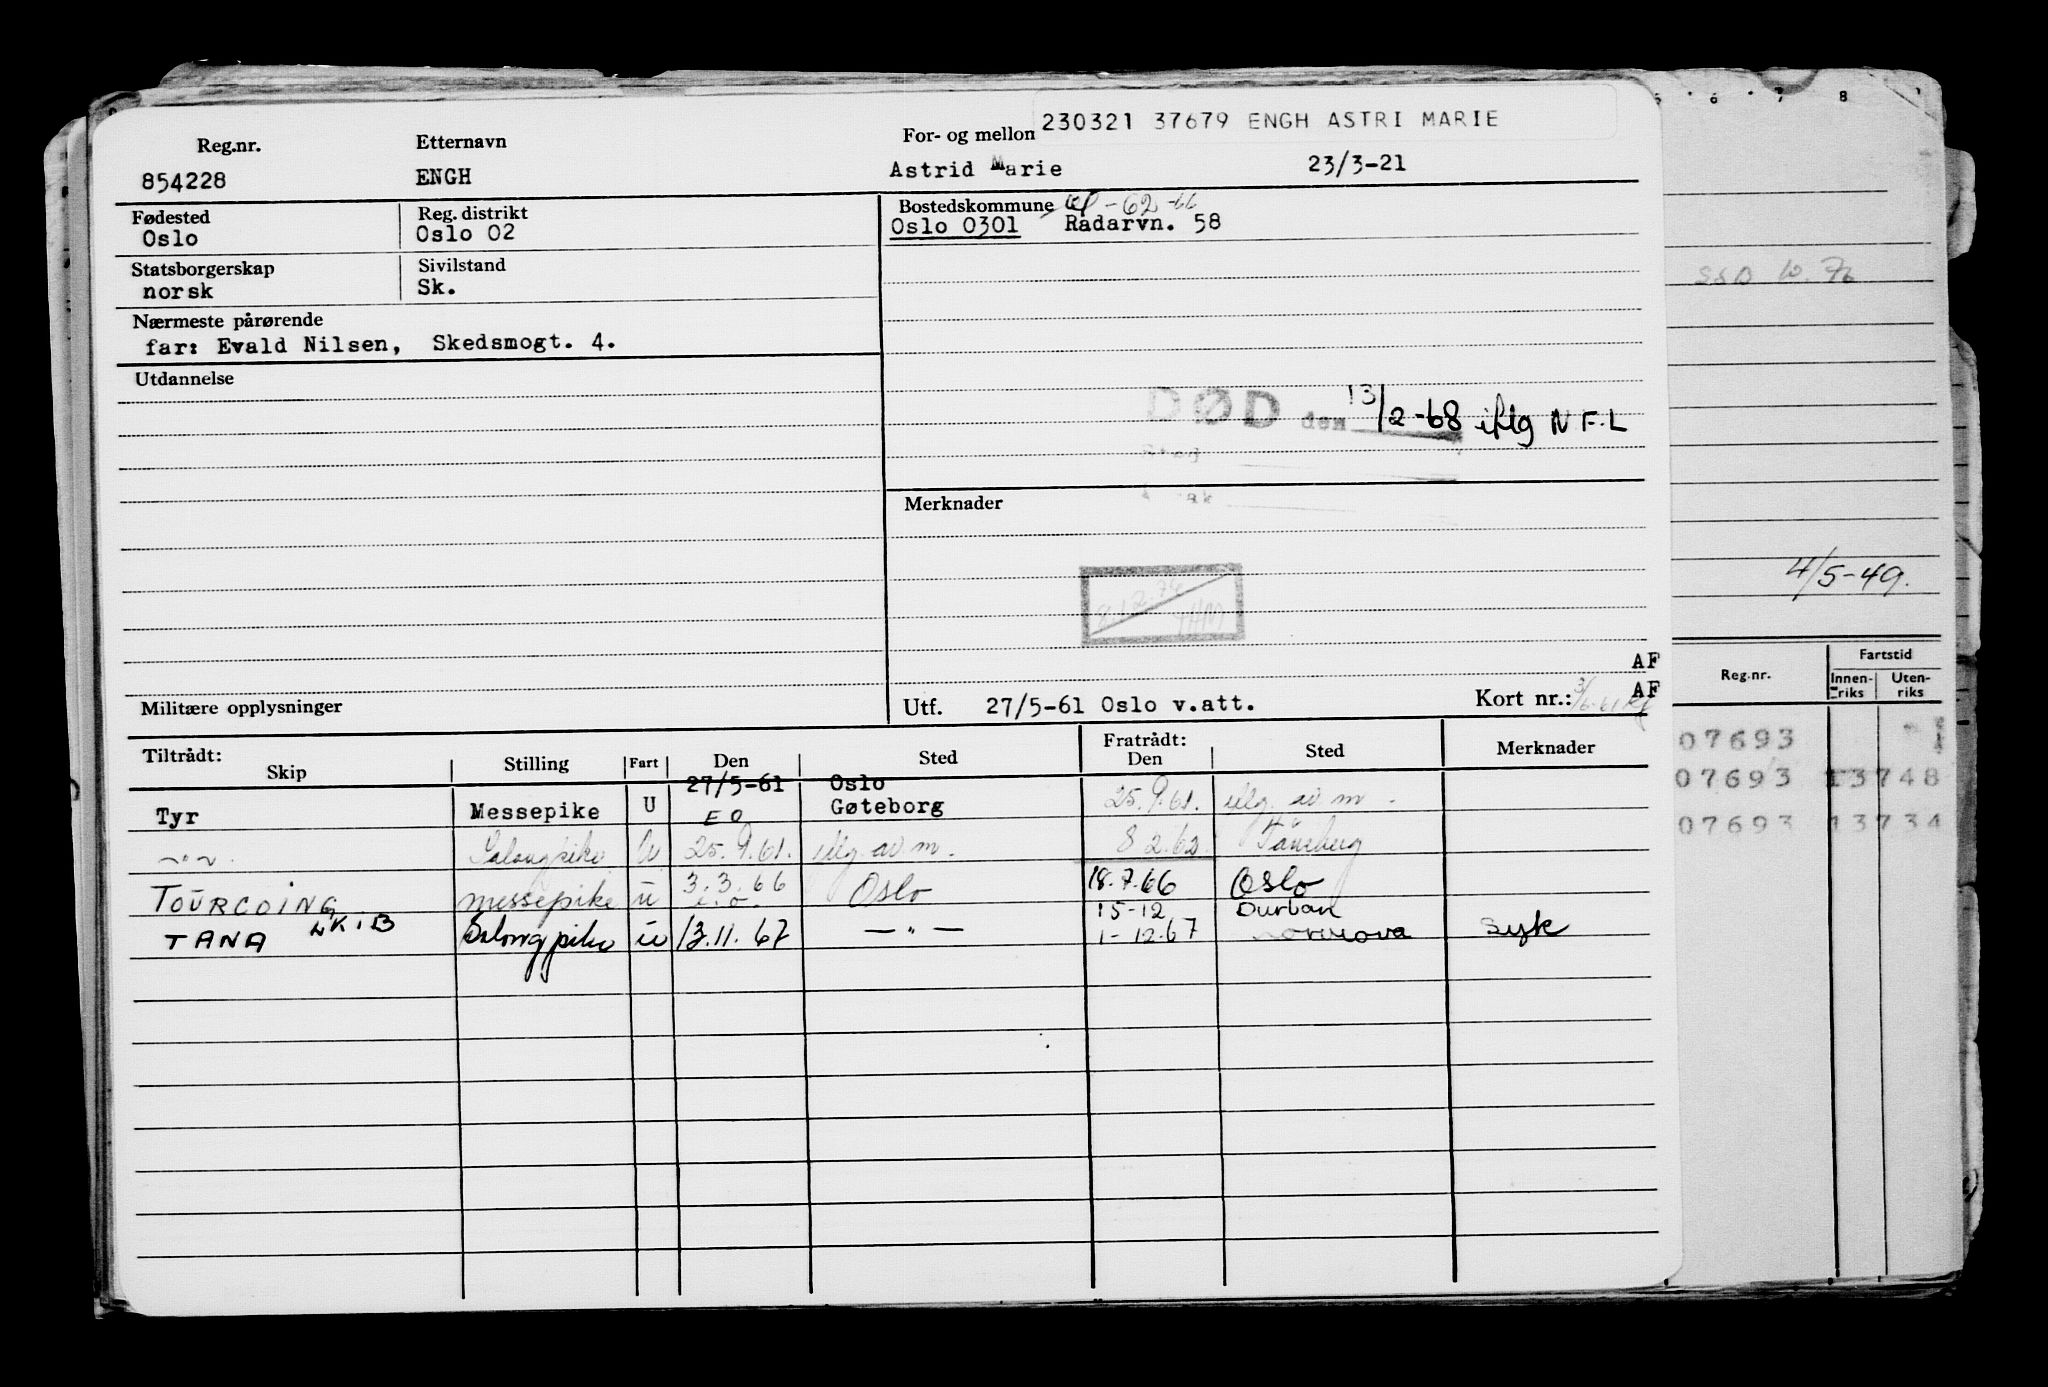 230321 37679 ENGH ASTRI MARIE
Reg.nr. Etternavn For- og mellon
854228 ENGH Astrid Marie 23/3-21
Fødested Reg. distrikt Bostedskommune -62-66
Oslo Oslo 02 Oslo 0301 Radarvn. 58
Statsborgerskap Sivilstand
norsk Sk.
Nærmeste pårørende
far: Evald Nilsen, Skedsmogt. 4.
Utdannelse
DØD den 13/2-68 iflg N F.L
Merknader
8.12.76
AF
Militære opplysninger Utf. 27/5-61 Oslo v.att. Kort nr.: AF
Tiltrådt: Fratrådt:
Skip Stilling Fart Den Sted Den Sted Merknader
27/5-61 Oslo
Tyr Messepike U EO Gøteborg 25.9.61. iflg. av m.
-"- Salongpike U 25.9.61. iflg. av m. 8 2.62
TOURCOING messepike u 3.3.66 e.o. Oslo 18.7.66 Oslo
15-12 Durban
TANA Salongpike u 13.11.67 -"- 1-12.67 syk
6 7 8
10.76
4/5-49.
Reg.nr. Fartstid
Innen-riks Uten-riks
07693
07693 13748
07693 13734